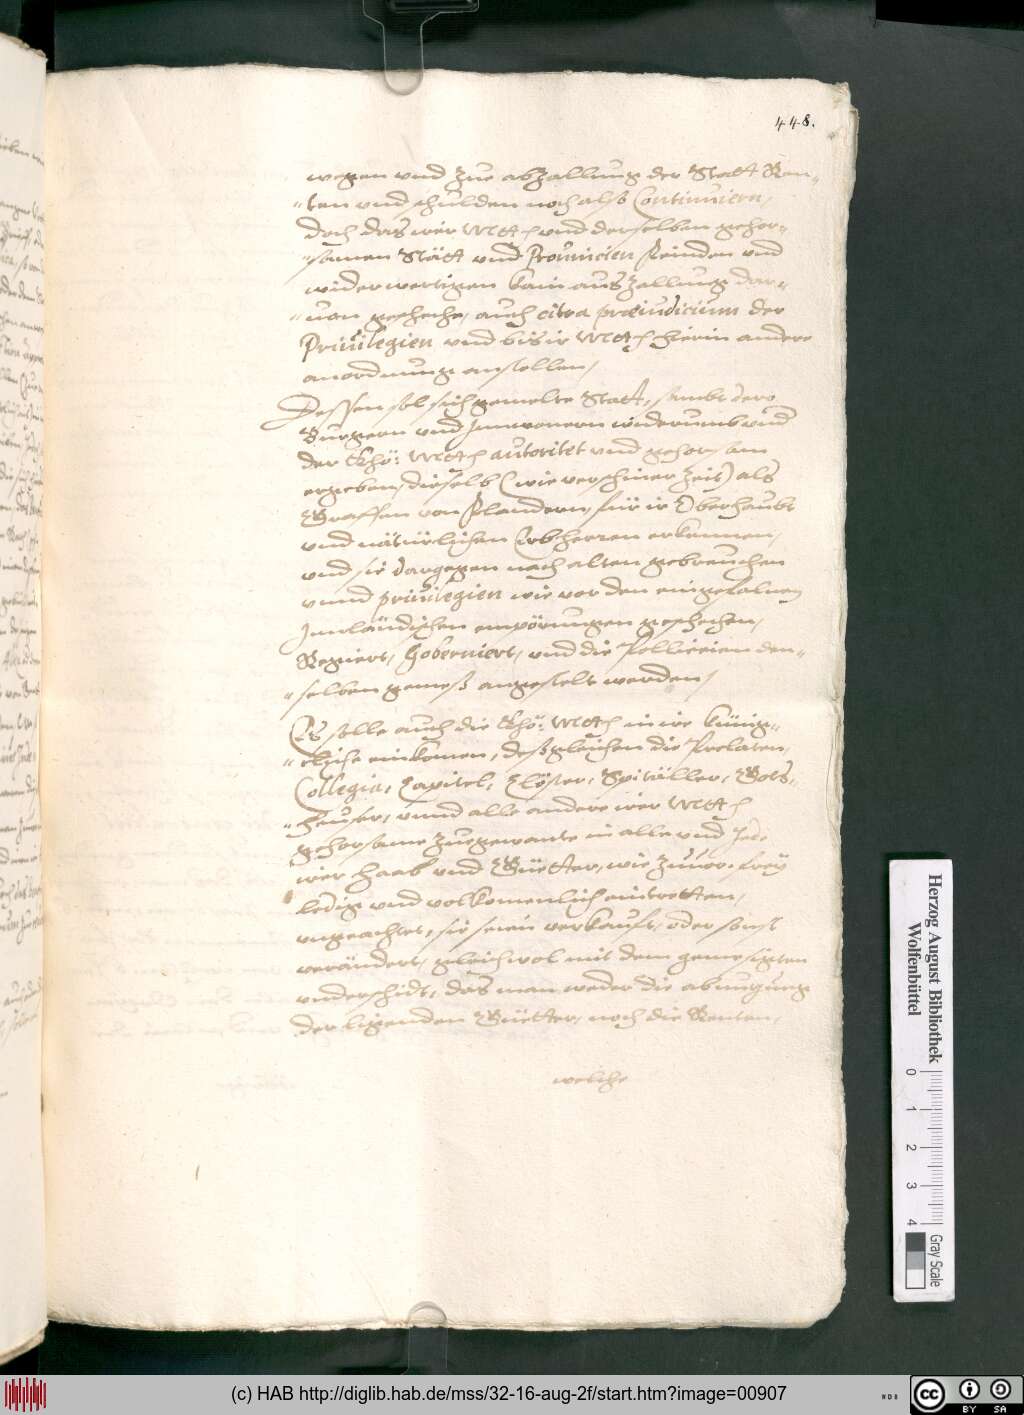 448.
wegen und zue abzallung der Statt Ren-
-ten und schulden noch also Continuiern,
doch das irer Mtt und derselben gehor-
-samen Stätt und Prouincien feinden und
widerwertigen kain auszallung dar-
-uon geschehe, auch citra praeiudicium der
Priuilegien und bis ir Mtt hierin andere
anordnung anstellen,
Dessen sol sich gemelte Statt, sambt dero
Burgern und Innwonern widerumb und
der Khö: Mtt autoritet und gehorsam
ergeben, dieselb (wie verschiner Zeit) als
Graffen von Flandern, für ir Oberhaubt
und nätürlichen Erbherren erkennen,
und sie dargegen nach alten gebreuchen
unnd priuilegien wie vor den eingefalnen
Innländischen empörungen geschehen,
Regiert, Goberniert, und die Polliceien den-
-selben gemeß angestelt werden,
Es solle auch die Khö: Mtt in ire künig-
-cliche einkomen, deßgleichen die Prelaten,
Collegia, Capitel, Clöster, Spitäller, Gots-
-heuser, unnd alle andere irer Mtt
gehorsame zuegewante in alle und Jede
irer haab und Güetter, wie zuuor, frey
ledig und volkomenlich eintretten,
ungeachtet, sie seien verkauft, oder sonst
verändert, gleichwol mit dem gemesigten
underschidt, das man weder die abnuzung
der ligenden Güetter, noch die Renten,
welche
Herzog August Bibliothek
Wolfenbüttel
0 1 2 3 4
Gray Scale
(c) HAB http://diglib.hab.de/mss/32-16-aug-2f/start.htm?image=00907
cc BY SA